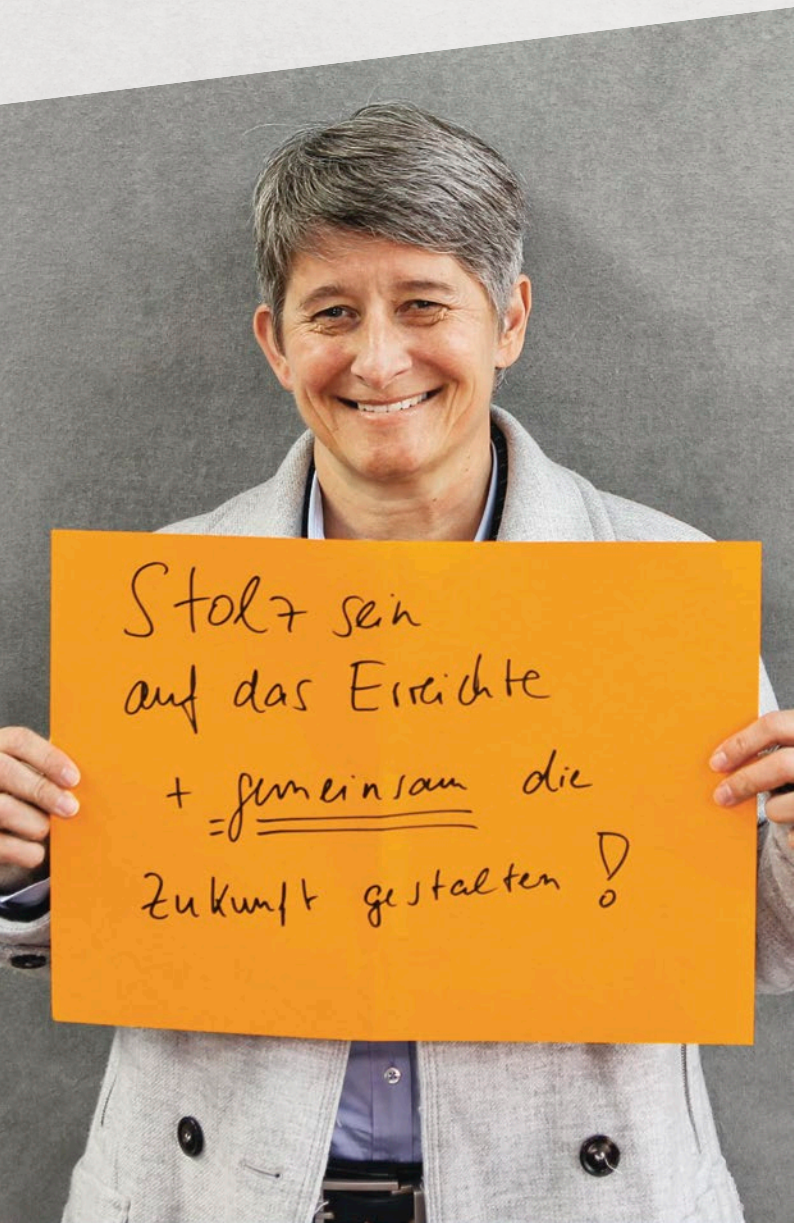 Stolz sein
auf das Erreichte
+ gemeinsam die
Zukunft gestalten!